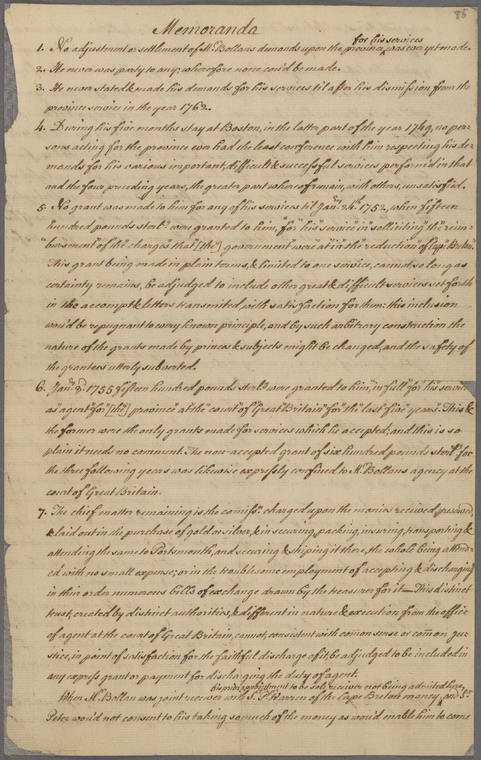 86
Memoranda
for his services
1. No adjustment or settlement of Mr. Bollans demands upon the province, was ever yet made.
2. He never was party to any; wherefore none cou'd be made.
3. He never stated & made his demands for his services til after his dismission from the
province service in the year 1762.
4. During his five months stay at Boston, in the latter part of the year 1749, no per-
sons acting for the province ever had the least conference with him respecting his de-
mands for his various important, difficult & successful services perform'd in that
and the four preceding years, the greater part whereof remain, with others, unsatisfied.
5. No grant was made to him for any of his services til Jany. 24th. 1752, when fifteen
hundred pounds sterlg. were granted to him, "for" his "service" in "solliciting" the "reim-
"bursment" of the charges that" [the] government were "at in the reduction of Cape Breton".
This grant being made in plain terms, & limited to one service, cannot, so long as
certainty remains, be adjudged to include other great & difficult services set forth
in the accompt & letters transmitted, with satisfaction for them: this inclusion
wou'd be repugnant to every known principle, and by such arbitrary construction the
nature of the grants made by princes & subjects might be changed, and the safety of
the grantees utterly subverted.
6. Jany. 1755 fifteen hundred pounds sterlg. were granted to him, "in full" for "his" services
as "agent" for" [the] province" at the "court" of "Great Britain" for "the" last five years". This &
the former were the only grants made for services which he accepted; and this is so
plain it needs no comment. The non-accepted grant of six hundred pounds sterlg. for
the three following years was likewise expressly confined to Mr. Bollans agency at the
court of Great Britain.
7. The chief matter remaining is the comissn. charged upon the monies received, preserved,
& laid out in the purchase of gold or silver, & in securing, packing, insuring, transporting &
attending the same to Portsmouth, and securing & shiping it there, the whole being attend-
ed with no small expense; or in the troublesome employment of accepting & discharging
in their order numerous bills of exchange drawn by the treasurer for it — This distinct
trust, erected by distinct authorities, & different in nature & execution from the office
of agent at the court of Great Britain, cannot, consistent with common sense or common jus-
tice, in point of satisfaction for the faithful discharge of it, be adjudged to be included in
any express grant or payment for discharging the duty of agent.
his own appointment to be sole receiver not being admitted here,
When Mr. Bollan was joint receiver with S. P. Warren of the Cape Breton money, and Sr.
Peter wou'd not consent to his taking so much of the money as wou'd enable him to come